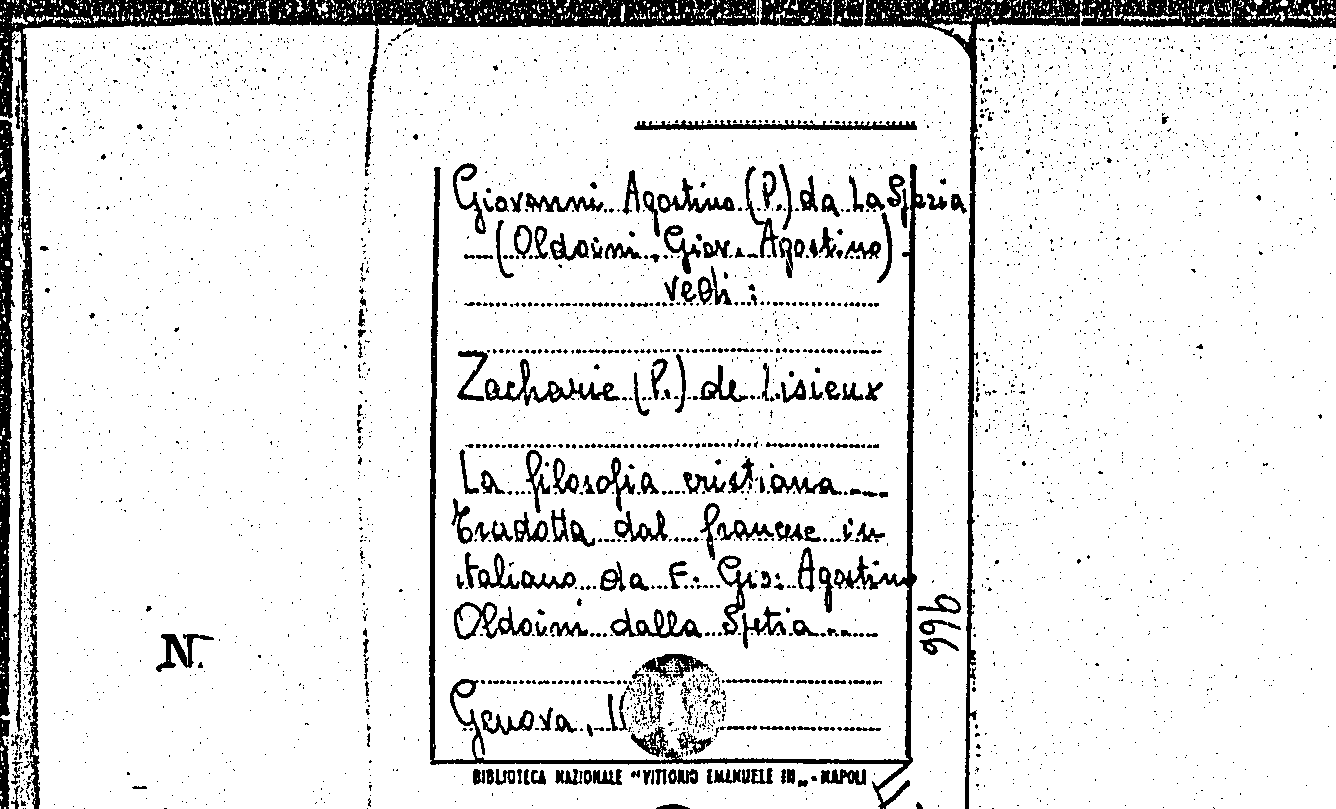 Giovanni Agostino (P.) da La Spezia
(Oldoini, Giov. Agostino).
vedi:
Zacharie (P.) de Lisieux
La filosofia cristiana ....
Tradotta dal francese in
italiano da F. Gio: Agostino
Oldoini dalla Spetia ....
Genova,
BIBLIOTECA NAZIONALE "VITTORIO EMANUELE III" - NAPOLI
966
N.